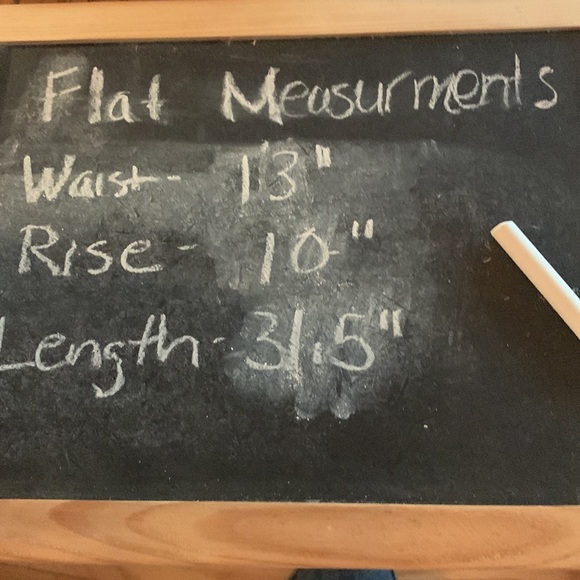 Flat Measurments
Waist- 13"
Rise- 10"
Length- 31.5"